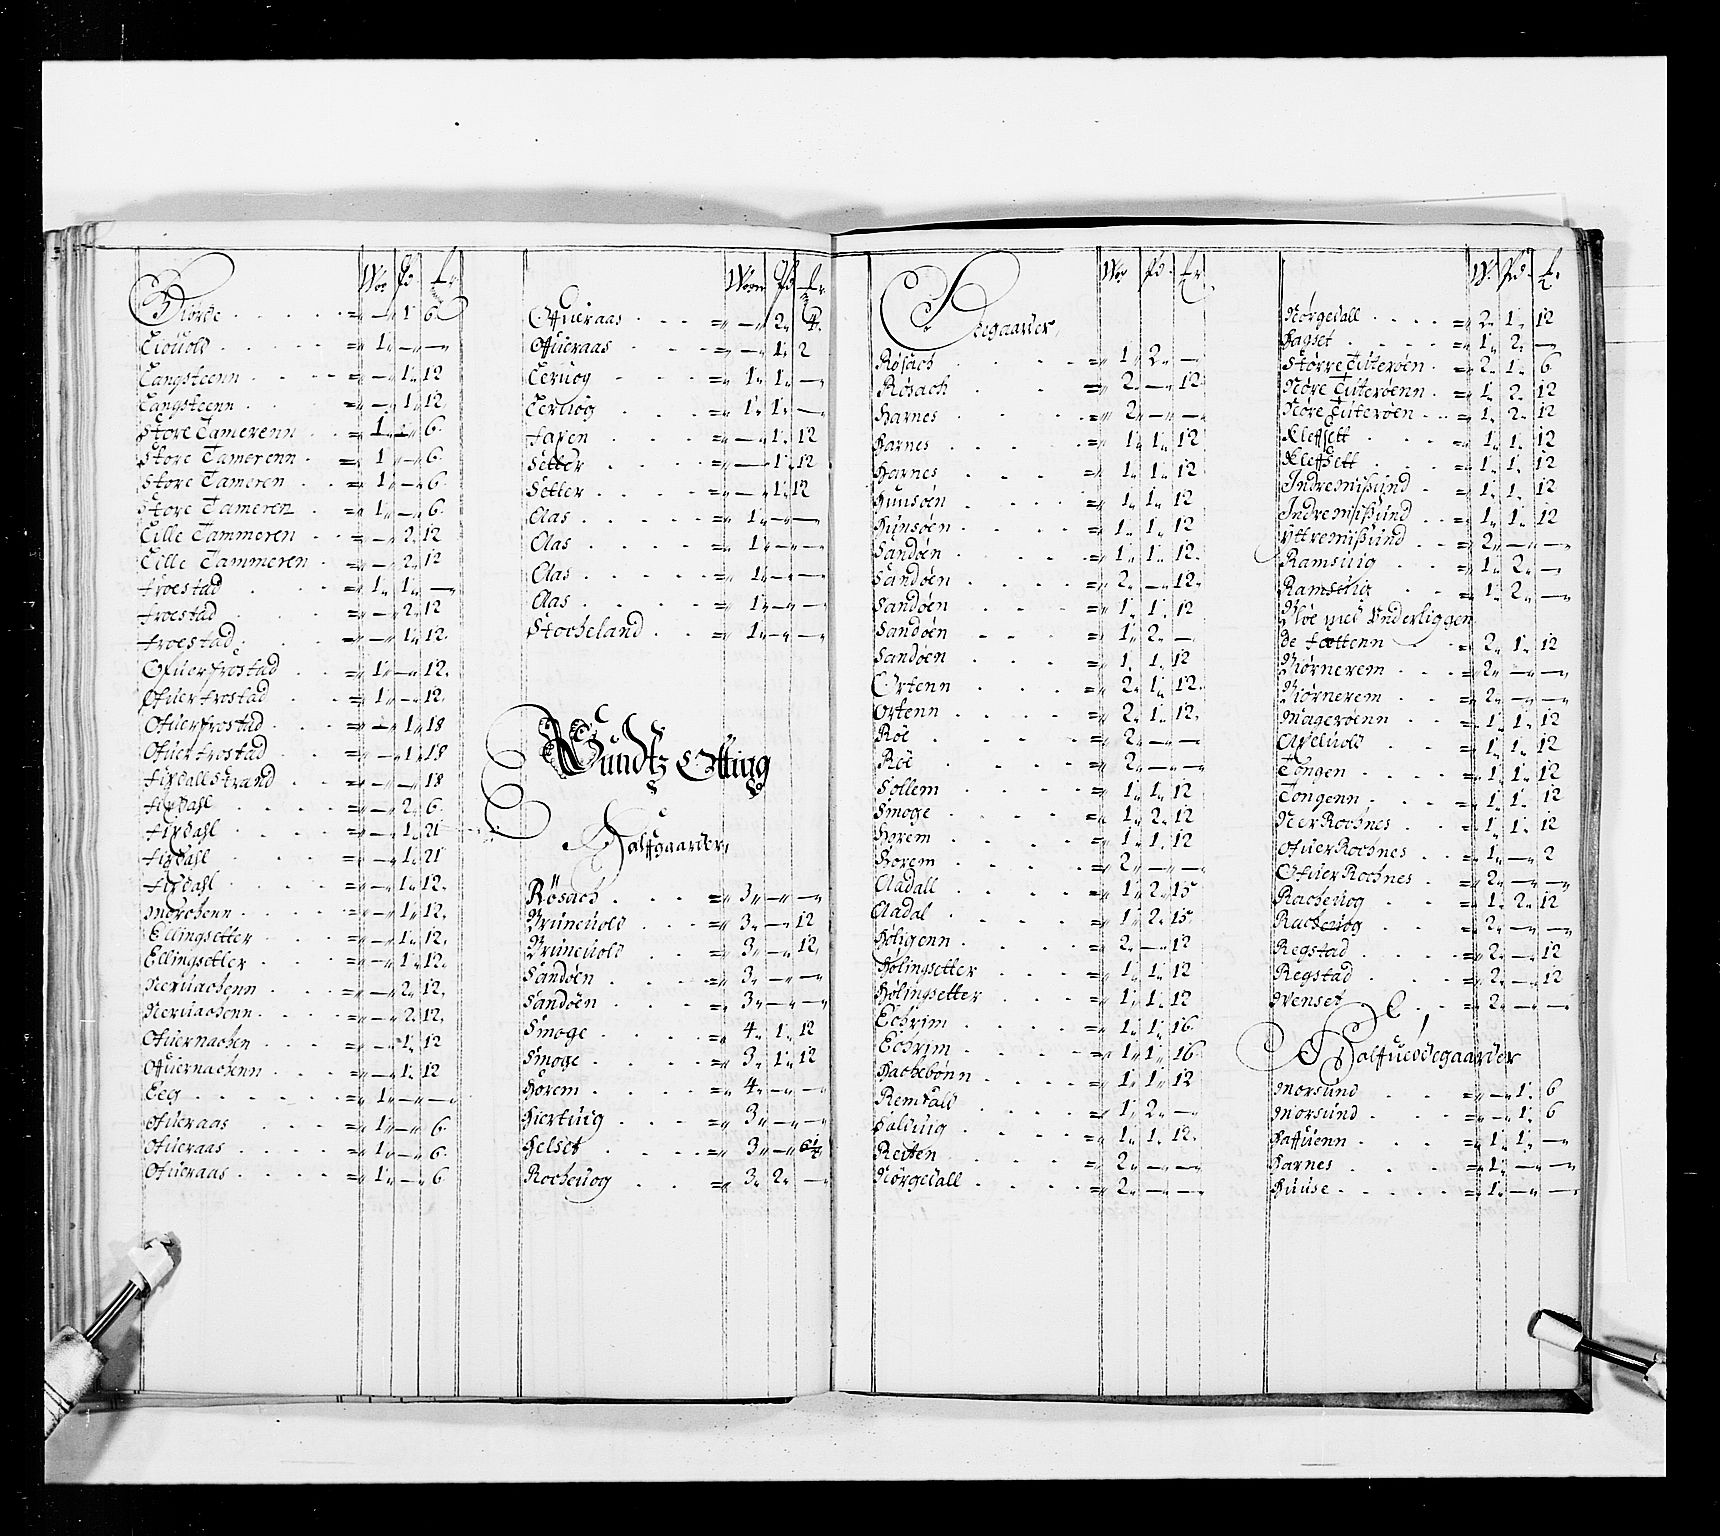 Wog Pd
Biørde = — 1 6
Liouold = 1 — —
Langsteenn = — 1. 12
Langsteenn = — 1. 12
Store Tamerenn = 1. 1. 6
Store Tamerenn = 1 — 6
Store Tameren = 1. — 6
Store Tameren = 1. — 6
Lille Tammeren = — 2. 12
Lille Tammeren = — 2. 12
Froestad = 1. 1. —
Froestad = — 2. 12
Froestad = — 1. 12
Ofuerfrostad = 1. — 12.
Ofuer frostad = 1. — 12.
Ofuerfrostad = — 1. 18
Ofuer frostad = — 1. 18
Fixdall Strand = — — 18
Fixdahl = — 2. 6.
Fixdahl = — 1. 21
Fixdahl = — 1. 21
Fixdahl = — 1. 12.
Morchenn = — 1. 12.
Ellingsetter = — 1. 12.
Ellingsetter = — 1. 12.
Neruachenn = — 2. 12.
Neruachenn = — 2. 12.
Ofuernachen = — 1. 12
Offuernachenn = — 1. 12
Eeg = 1. — —
Ofueraas = 1. — 6
Ofueraas = 1. — 6
Ofueraas = 1. — 6
Woeg Pd
Offueraas = — 2. 4.
Offueraas = — 1. 2
Leruog = 1. 1. —
Leruog = 1. 1. —
Faxen = — 1. 12
Setter = — 1. 12
Setter = — 1. 12
Aas = 1. — —
Aas = 1. — —
Aas = 1. — —
Aas = 1. — —
Stocheland = 1. — —
Bundtz Otting
Halfgaarder,
Røsach = 3. — —
Bruneuold = 3. — 12
Bruneuold = 3. — 12.
Sandøen = 3. — —
Sandøen = 3. — —
Smoge = 4. 1. 12
Smoge = 3. 1. 12
Horem = 4. — —
Hiertuig = 3. — —
Helset = 3. — 6½
Rocheuog = 3. 2. —
Wog Pd
Ødegaarder,
Røsach = 1. 2. —
Røsach = 2. — 12.
Harnes = 2. — —
Harnes = 1. 1. 12
Harnes = 1. 1. 12
Huusøen = 1. 1. 12
Hunsøen = 1. 1. 12
Sandøen = 1. 1. 12.
Sandøen = 2. — 12.
Sandøen = 1. 1. 12
Sandøen = 1. 2. —
Sandøen = 1. 1. 12
Ortenn = 2. 1. 12.
Ortenn = 2. 1. 12.
Røe = 2. — —
Røe = 2. — —
Sollem = 1. 1. 12
Smoge = 1. 2. 12
Horem = 1. 1. 12
Horem = 2. — —
Aadall = 1. 2. 15
Aadal = 1. 2. 15
Høligenn = 2. — 12
Hølingsetter = 1. 1. 12
Hølingsetter = 1. 1. 12
Echrim = 1. 1. 16.
Echrim = 1. 1. 16
Hachebønn = 1. 1. 12
Remdall = 1. 2. —
Halduig = 1. 1. 12.
Reiten = 2. — —
Nørgedall = 2. — —
W. Pd.
Nørgedall = 2. 1. 12
Hagset = 1. 2. —
Større Tiiterøen = 2. 1. 6
Nøre Tiiterøenn = 1. 2. 12
Nøre Tiiterøen = 1. 2. 12
Kleffsett = 1. 1. 12
Kleffsett = 1. 1. 12
Indremißund = 1. 1. 12
Indremißund = 1. 1. 12
Yttremißund = 2. — —
Ramsuig = 1. 2. —
Ramsuig = 1. 2. —
Bøe med Underliggen
de Fættenn = 2. 1. 12
Biørnerem = 2. — —
Biørnerem = 2. — —
Magerøenn = 1. 1. 12
Axeluold = 1. 1. 12
Tongen = 1. 1. 12
Tongenn = 1. 1. 12
Ner Rochnes = 1. 1. 12
Ofuer Rochnes = 1. — 2
Ofuer Rochnes = 2. — —
Racheuog = 1. 2. 12
Racheuog = 2. — —
Regstad = 2. — 12
Regstad = 2. — 12
Svenset = 2. — —
Halfuedegaarder
Morsund = — 1. 6
Morsund = — 1. 6
Haffuenn = 1. 1. —
Harnes = 1. — —
Huuse = 1. — —